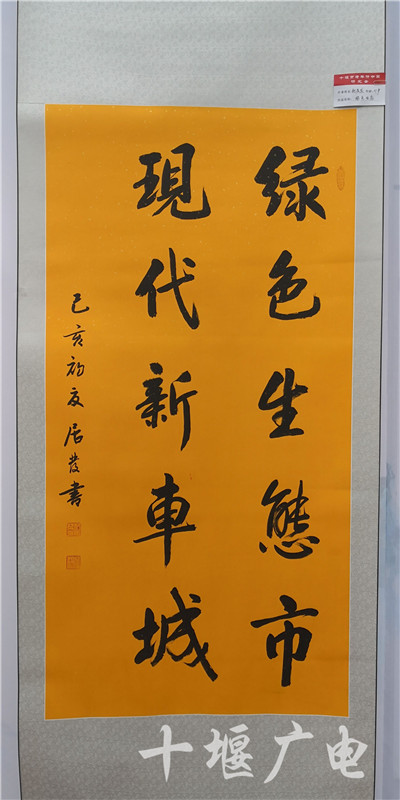 绿色生態市
現代新車城
己亥初夏居發書
十堰广电